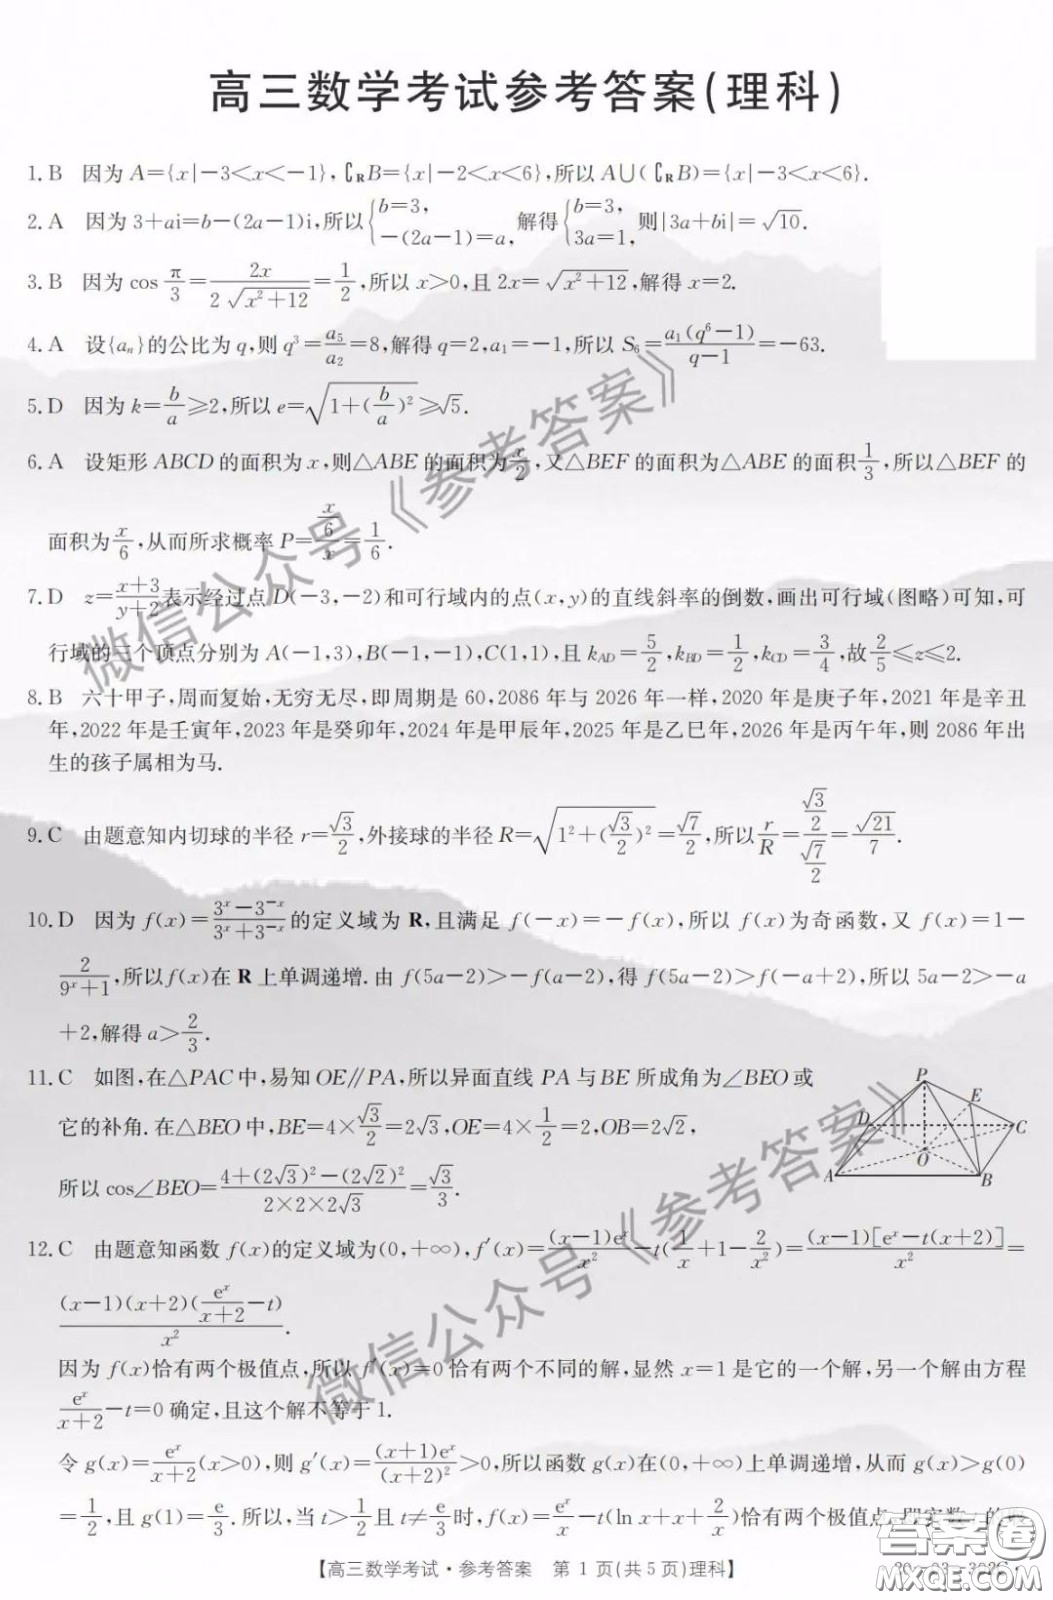 高三数学考试参考答案(理科)
1. B 因为 A={x|-3<x<-1}, ∁_R B={x|-2<x<6}, 所以 A∪(∁_R B)={x|-3<x<6}.
2. A 因为 3+ai=b-(2a-1)i, 所以 {b=3, -(2a-1)=a, 解得 {b=3, 3a=1, 则|3a+bi|=√10.
3. B 因为 cos π/3=2x/(2√(x²+12))=1/2, 所以 x>0, 且 2x=√(x²+12), 解得 x=2.
4. A 设{aₙ}的公比为 q, 则 q³=a₅/a₂=8, 解得 q=2, a₁=-1, 所以 S₆=a₁(q⁶-1)/(q-1)=-63.
5. D 因为 k=b/a≥2, 所以 e=√(1+(b/a)²)≥√5.
6. A 设矩形 ABCD 的面积为 x, 则△ABE 的面积为 x/2, 又△BEF 的面积为△ABE 的面积 1/3, 所以△BEF 的
面积为 x/6, 从而所求概率 P=(x/6)/x=1/6.
7. D z=(x+3)/(y+2)表示经过点 D(-3,-2)和可行域内的点(x,y)的直线斜率的倒数, 画出可行域(图略)可知, 可
行域的三个顶点分别为 A(-1,3), B(-1,-1), C(1,1), 且 k_AD=5/2, k_BD=1/2, k_CD=3/4, 故 2/5≤z≤2.
8. B 六十甲子, 周而复始, 无穷无尽, 即周期是 60, 2086 年与 2026 年一样, 2020 年是庚子年, 2021 年是辛丑
年, 2022 年是壬寅年, 2023 年是癸卯年, 2024 年是甲辰年, 2025 年是乙巳年, 2026 年是丙午年, 则 2086 年出
生的孩子属相为马.
9. C 由题意知内切球的半径 r=√3/2, 外接球的半径 R=√(1²+(√3/2)²)=√7/2, 所以 r/R=(√3/2)/(√7/2)=√21/7.
10. D 因为 f(x)=(3ˣ-3⁻ˣ)/(3ˣ+3⁻ˣ)的定义域为 R, 且满足 f(-x)=-f(x), 所以 f(x)为奇函数, 又 f(x)=1-
2/(9ˣ+1), 所以 f(x)在 R 上单调递增. 由 f(5a-2)>-f(a-2), 得 f(5a-2)>f(-a+2), 所以 5a-2>-a
+2, 解得 a>2/3.
11. C 如图, 在△PAC 中, 易知 OE∥PA, 所以异面直线 PA 与 BE 所成角为∠BEO 或
它的补角. 在△BEO 中, BE=4×√3/2=2√3, OE=4×1/2=2, OB=2√2,
所以 cos∠BEO=(4+(2√3)²-(2√2)²)/(2×2×2√3)=√3/3.
P
E
D
C
O
A
B
12. C 由题意知函数 f(x)的定义域为(0,+∞), f′(x)=(x-1)eˣ/x²-t(1/x+1-2/x²)=(x-1)[eˣ-t(x+2)]/x²=
(x-1)(x+2)(eˣ/(x+2)-t)/x².
因为 f(x)恰有两个极值点, 所以 f′(x)=0 恰有两个不同的解, 显然 x=1 是它的一个解, 另一个解由方程
eˣ/(x+2)-t=0 确定, 且这个解不等于 1.
令 g(x)=eˣ/(x+2)(x>0), 则 g′(x)=(x+1)eˣ/(x+2)²>0, 所以函数 g(x)在(0,+∞)上单调递增, 从而 g(x)>g(0)
=1/2, 且 g(1)=e/3. 所以, 当 t>1/2 且 t≠e/3 时, f(x)=eˣ/x-t(ln x+x+2/x)恰有两个极值点, 即实数 t 的取
【高三数学考试·参考答案 第 1 页(共 5 页)理科】
微信公众号《参考答案》
微信公众号《参考答案》
答案圈
MXQE.COM